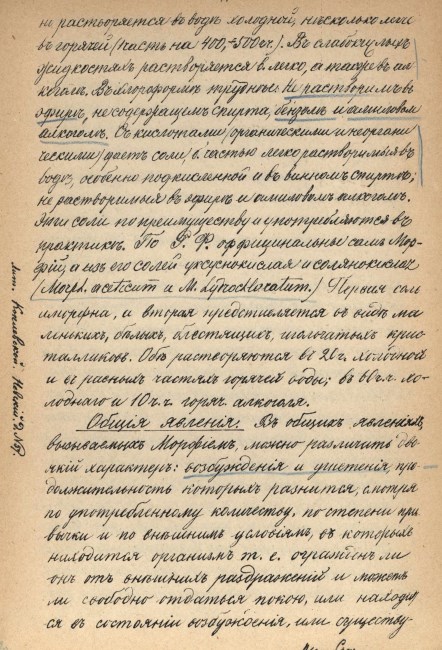 не растворяется въ водѣ холодной, нѣсколько легче
въ горячей (часть на 400–500 ч.). Въ слабокислыхъ
жидкостяхъ растворяется б. легко, а также въ ал-
коголѣ. Въ хлороформѣ труднѣе. Не растворимъ въ
эфирѣ, не содержащемъ спирта, бензолѣ и амиловомъ
алкоголѣ. Съ кислотами (органическими и неоргани-
ческими) даетъ соли б. частью легко растворимыя въ
водѣ, особенно подкисленной и въ винномъ спиртѣ;
не растворимыя въ эфирѣ и амиловомъ алкоголѣ.
Эти соли по преимуществу и употребляются въ
практикѣ. По Ф. Р. оффицинальны самъ Мор-
фій, а изъ его солей уксуснокислая и солянокислая
(Morph. aceticum и M. hydrochloratum.) Первая соль
аморфна, и вторая представляется въ видѣ ма-
ленькихъ, бѣлыхъ, блестящихъ, игольчатыхъ крис-
талликовъ. Обѣ растворяются въ 20 ч. холодной
и въ равныхъ частяхъ горячей воды; въ 60 ч. хо-
лоднаго и 10 ч. горяч. алкоголя.
Общія явленія. Въ общихъ явленіяхъ,
вызываемыхъ Морфіемъ, можно различить дво-
якій характеръ: возбужденія и угнетенія, про-
должительность которыхъ разнится, смотря
по употребленному количеству, по степени при-
вычки и по внѣшнимъ условіямъ, въ которыхъ
находится организмъ т. е. огражденъ ли
онъ отъ внѣшнихъ раздраженій и можетъ
ли свободно отдаться покою, или находит-
ся въ состояніи возбужденія, или существу-
Лит.
Невскій